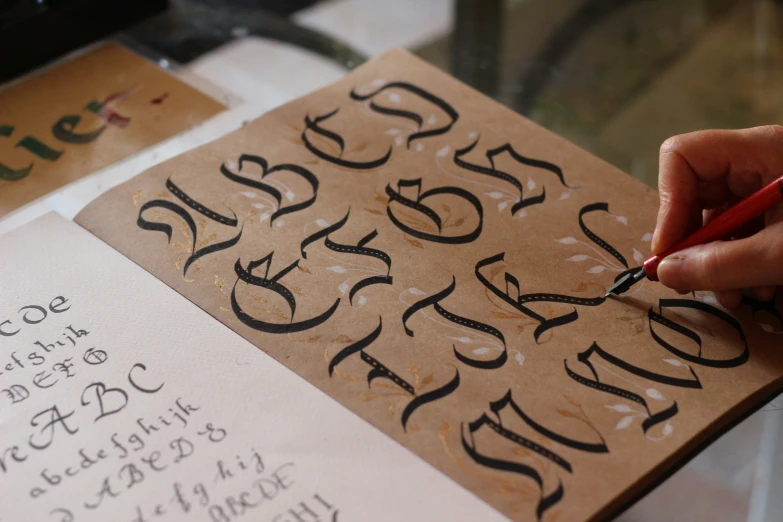 lier
cde
efghijk
DEFG
ABC
abcdefghijk
ABCD
efghij
BCDE
GHI
ABCD
EFGH
IJKL
MNO